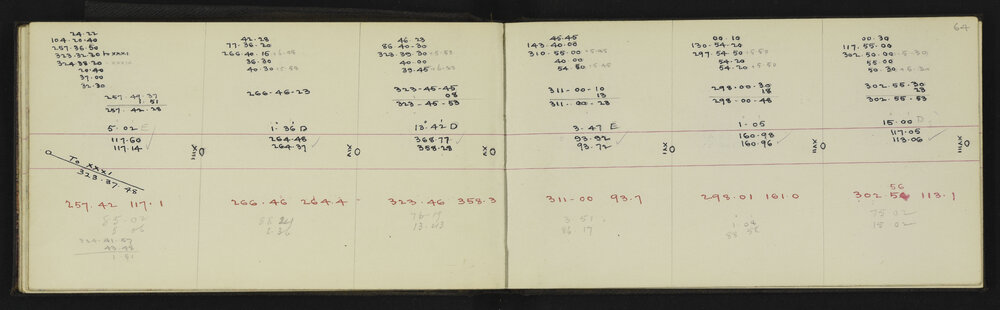 64
24.22
104.20.40
257.36.50
323.32.20 to XXXI
324.38.20
20.40
37.00
32.30
257.49.37
1.51
257.42.28
5.02 E
117.60
117.14
To XXXI
323.37.48
257.42 117.1
85.02
5.06
324.41.57
43.48
1.51
42.28
77.36.20
266.40.15
36.30
40.30
266.46.23
1.36 D
264.48
264.37
266.46 264.4
1.36
46.23
86.40.30
323.39.30 +5.53
40.00
39.45
323-45-45
08
323-45-53
13.42 D
368.77
358.28
323.46 358.3
76.17
13.43
45.45
143.40.00
310.55.00
40.00
54.50
311-00-10
13
311-00-23
3.47 E
93.92
93.72
311.00 93.7
3.51
86.17
00.10
130.54.20
297.54.50
54.20
54.20 +5.50
298.00.30
18
298.00-48
1.05
160.98
160.96
298.01 161.0
1.08
88.58
00.30
117.55.00
302.50.00
55.00
50.30 +5.30
302.55.30
23
302.55-53
15.00 D
117.05
113.06
56
302.54 113.1
75.02
15 02